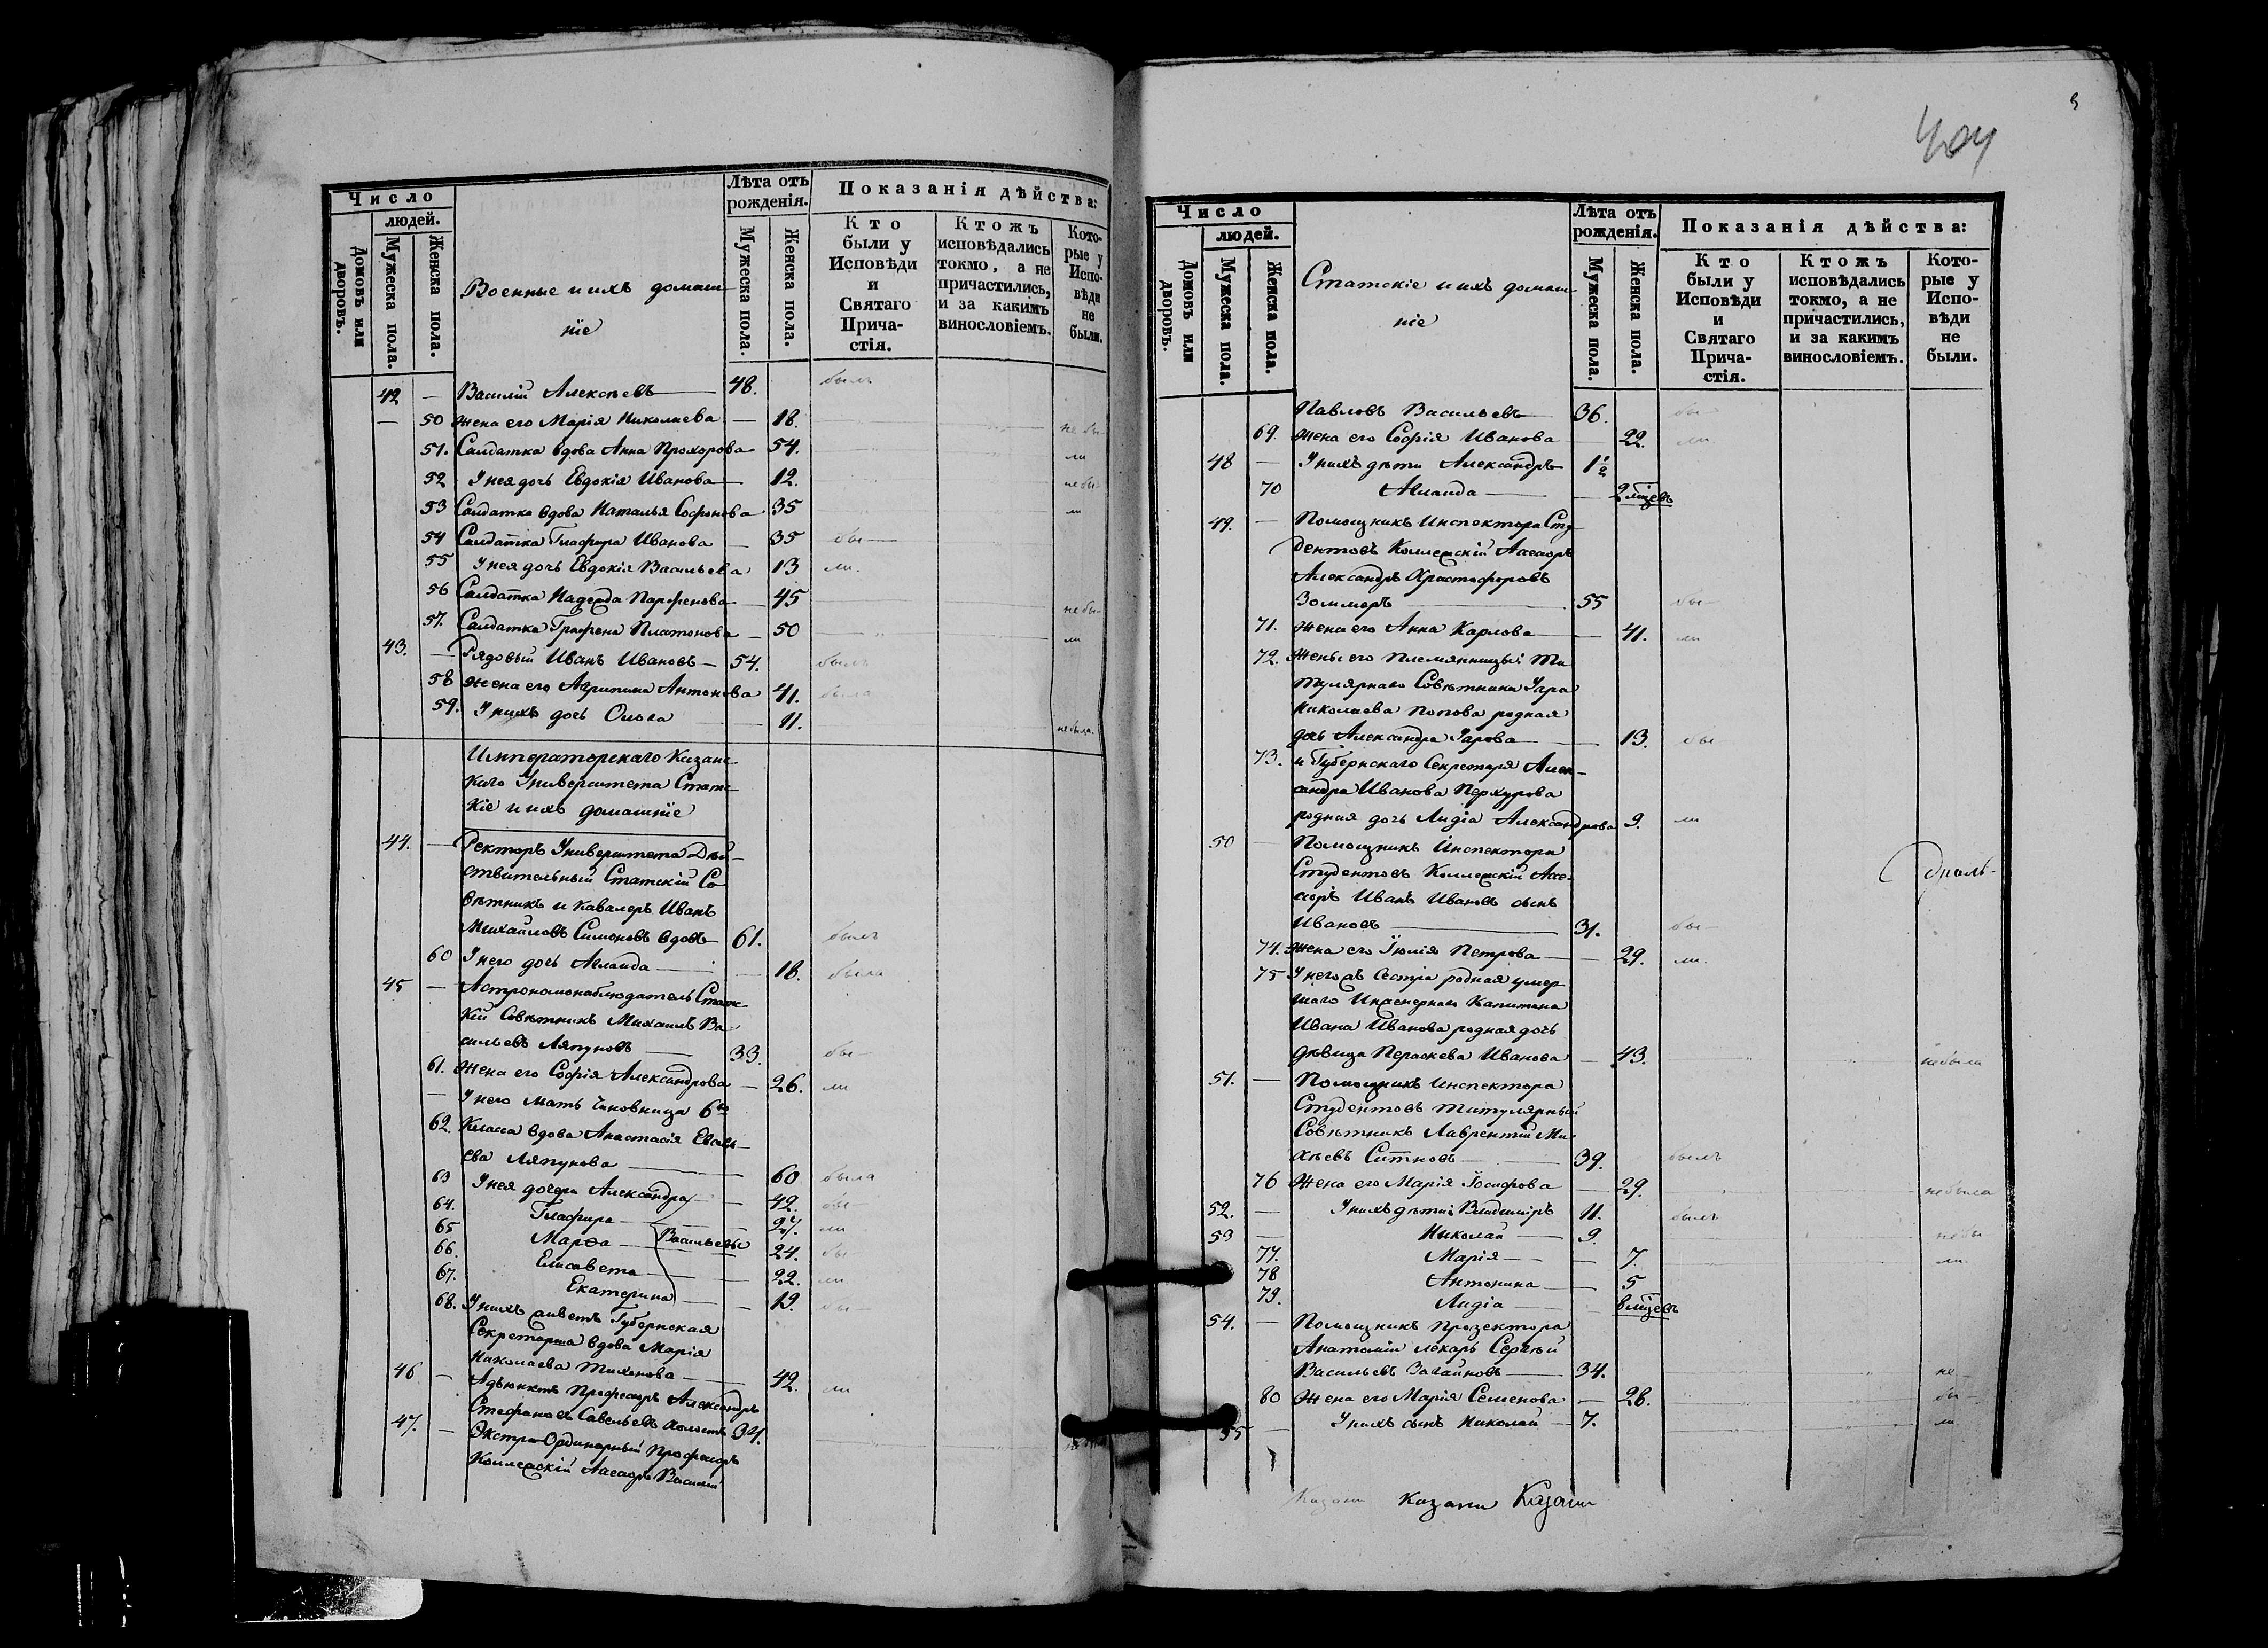 Число
людей.
Домовъ или дворовъ.
Мужеска пола.
Женска пола.
Военные и ихъ домаш
ніе
Лѣта отъ рожденія.
Мужеска пола.
Женска пола.
Показанія дѣйства:
Кто были у Исповѣди и Святаго Прича-стія.
Ктожъ исповѣдались токмо, а не причастились, и за какимъ винословіемъ.
Кото-рые у Испо-вѣди не были.
42 — Василій Алексѣевъ — 48. былъ
— 50 жена его Марія Николаева — 18. не бы-
51. Салдатка вдова Анна Прохорова 54. ли
52 У нея дочь Евдокія Иванова — 12. не бы-
53 Салдатка вдова Наталья Софонова 35 ли
54 Салдатка Глафира Иванова — 35 бы—
55 У нея дочь Евдокія Васильева 13 ли.
56 Салдатка Надежда Парфенова — 45 не бы-
57. Салдатка Графена Платонова — 50 ли
43. — Рядовый Иванъ Ивановъ — 54. былъ
58 жена его Агрипина Антонова 41. была
59. У нихъ дочь Ольга 11. не была.
Императорскаго Казанс-
каго Университета Статс-
кіе и ихъ домашніе
44. — Ректоръ Университета Дѣй-
ствительный Статскій Со
вѣтникъ и Кавалеръ Иванъ
Михайловъ Симоновъ вдовъ 61. былъ
60 У него дочь Аглаида — 18. была
45 — Астрономонаблюдатель Статс-
кій Совѣтникъ Михаилъ Ва
сильевъ Ляпуновъ — 33. бы—
61. жена его Софія Александрова — 26. ли
— У него мать чиновница 6го
62. Класса вдова Анастасія Евсѣ-
ева Ляпунова — 60 была
63 У нея дочери Александра — 42. бы—
64. Глафира — 27. ли
65 Марѳа — Васильевы 24. бы
66. Елисавета — 22. ли
67. Екатерина — 19. бы—
68. У нихъ живетъ Губернская
Секретарша вдова Марія
Николаева Тихонова — 42. ли
46 — Адъюнктъ Професоръ Александръ
Стефановъ Савельевъ холостъ 34.
47. — Экстра-Ординарный Професоръ
Коллежскій Ассесоръ Василій
404
Число
людей.
Домовъ или дворовъ.
Мужеска пола.
Женска пола.
Статскіе и ихъ домаш
ніе
Лѣта отъ рожденія.
Мужеска пола.
Женска пола.
Показанія дѣйства:
Кто были у Исповѣди и Святаго Прича-стія.
Ктожъ исповѣдались токмо, а не причастились, и за какимъ винословіемъ.
Кото-рые у Испо-вѣди не были.
Павловъ Васильевъ — 36. бы—
69. жена его Софія Иванова — 22. ли.
48 — У нихъ дѣти Александръ 1½
70 Аглаида — 2 мѣцевъ
49. — Помощникъ Инспектора Сту-
дентовъ Коллежскій Ассесоръ
Александръ Христофоровъ
Зоммеръ — 55 бы—
71. жена его Анна Карлова — 41. ли
72. жены его племянницы: Ти
тулярнаго Совѣтника Уара
Николаева Попова родная
дочь Александра Уарова — 13. бы
73. и Губернскаго Секретаря Алек-
сандра Иванова Перхурова
родная дочь Лидія Александрова 9. ли
50 — Помощникъ Инспектора
Студентовъ Коллежскій Ассе-
соръ Иванъ Ивановъ сынъ
Ивановъ — 31. бы—
74. жена его Юлія Петрова — 29. ли.
75 У него жъ сестра родная умер
шаго Инженернаго Капитана
Ивана Иванова родная дочь
дѣвица Параскева Иванова — 43. не была
51. — Помощникъ Инспектора
Студентовъ Титулярный
Совѣтникъ Лаврентій Ми-
хѣевъ Ситновъ — 39. былъ
76 жена его Марія Іосифова — 29. не была
52. — У нихъ дѣти: Владиміръ 11. былъ
53 — Николай — 9. не бы
77. Марія — 7. ли.
78 Антонина — 5
79. Лидія — 8 мѣцевъ
54. — Помощникъ Прозектора
Анатоміи Лекарь Сергѣй
Васильевъ Загайновъ — 34. не
80 жена его Марія Семенова — 28. бы—
55 — У нихъ сынъ Николай — 7. ли
Казани Казани Казани